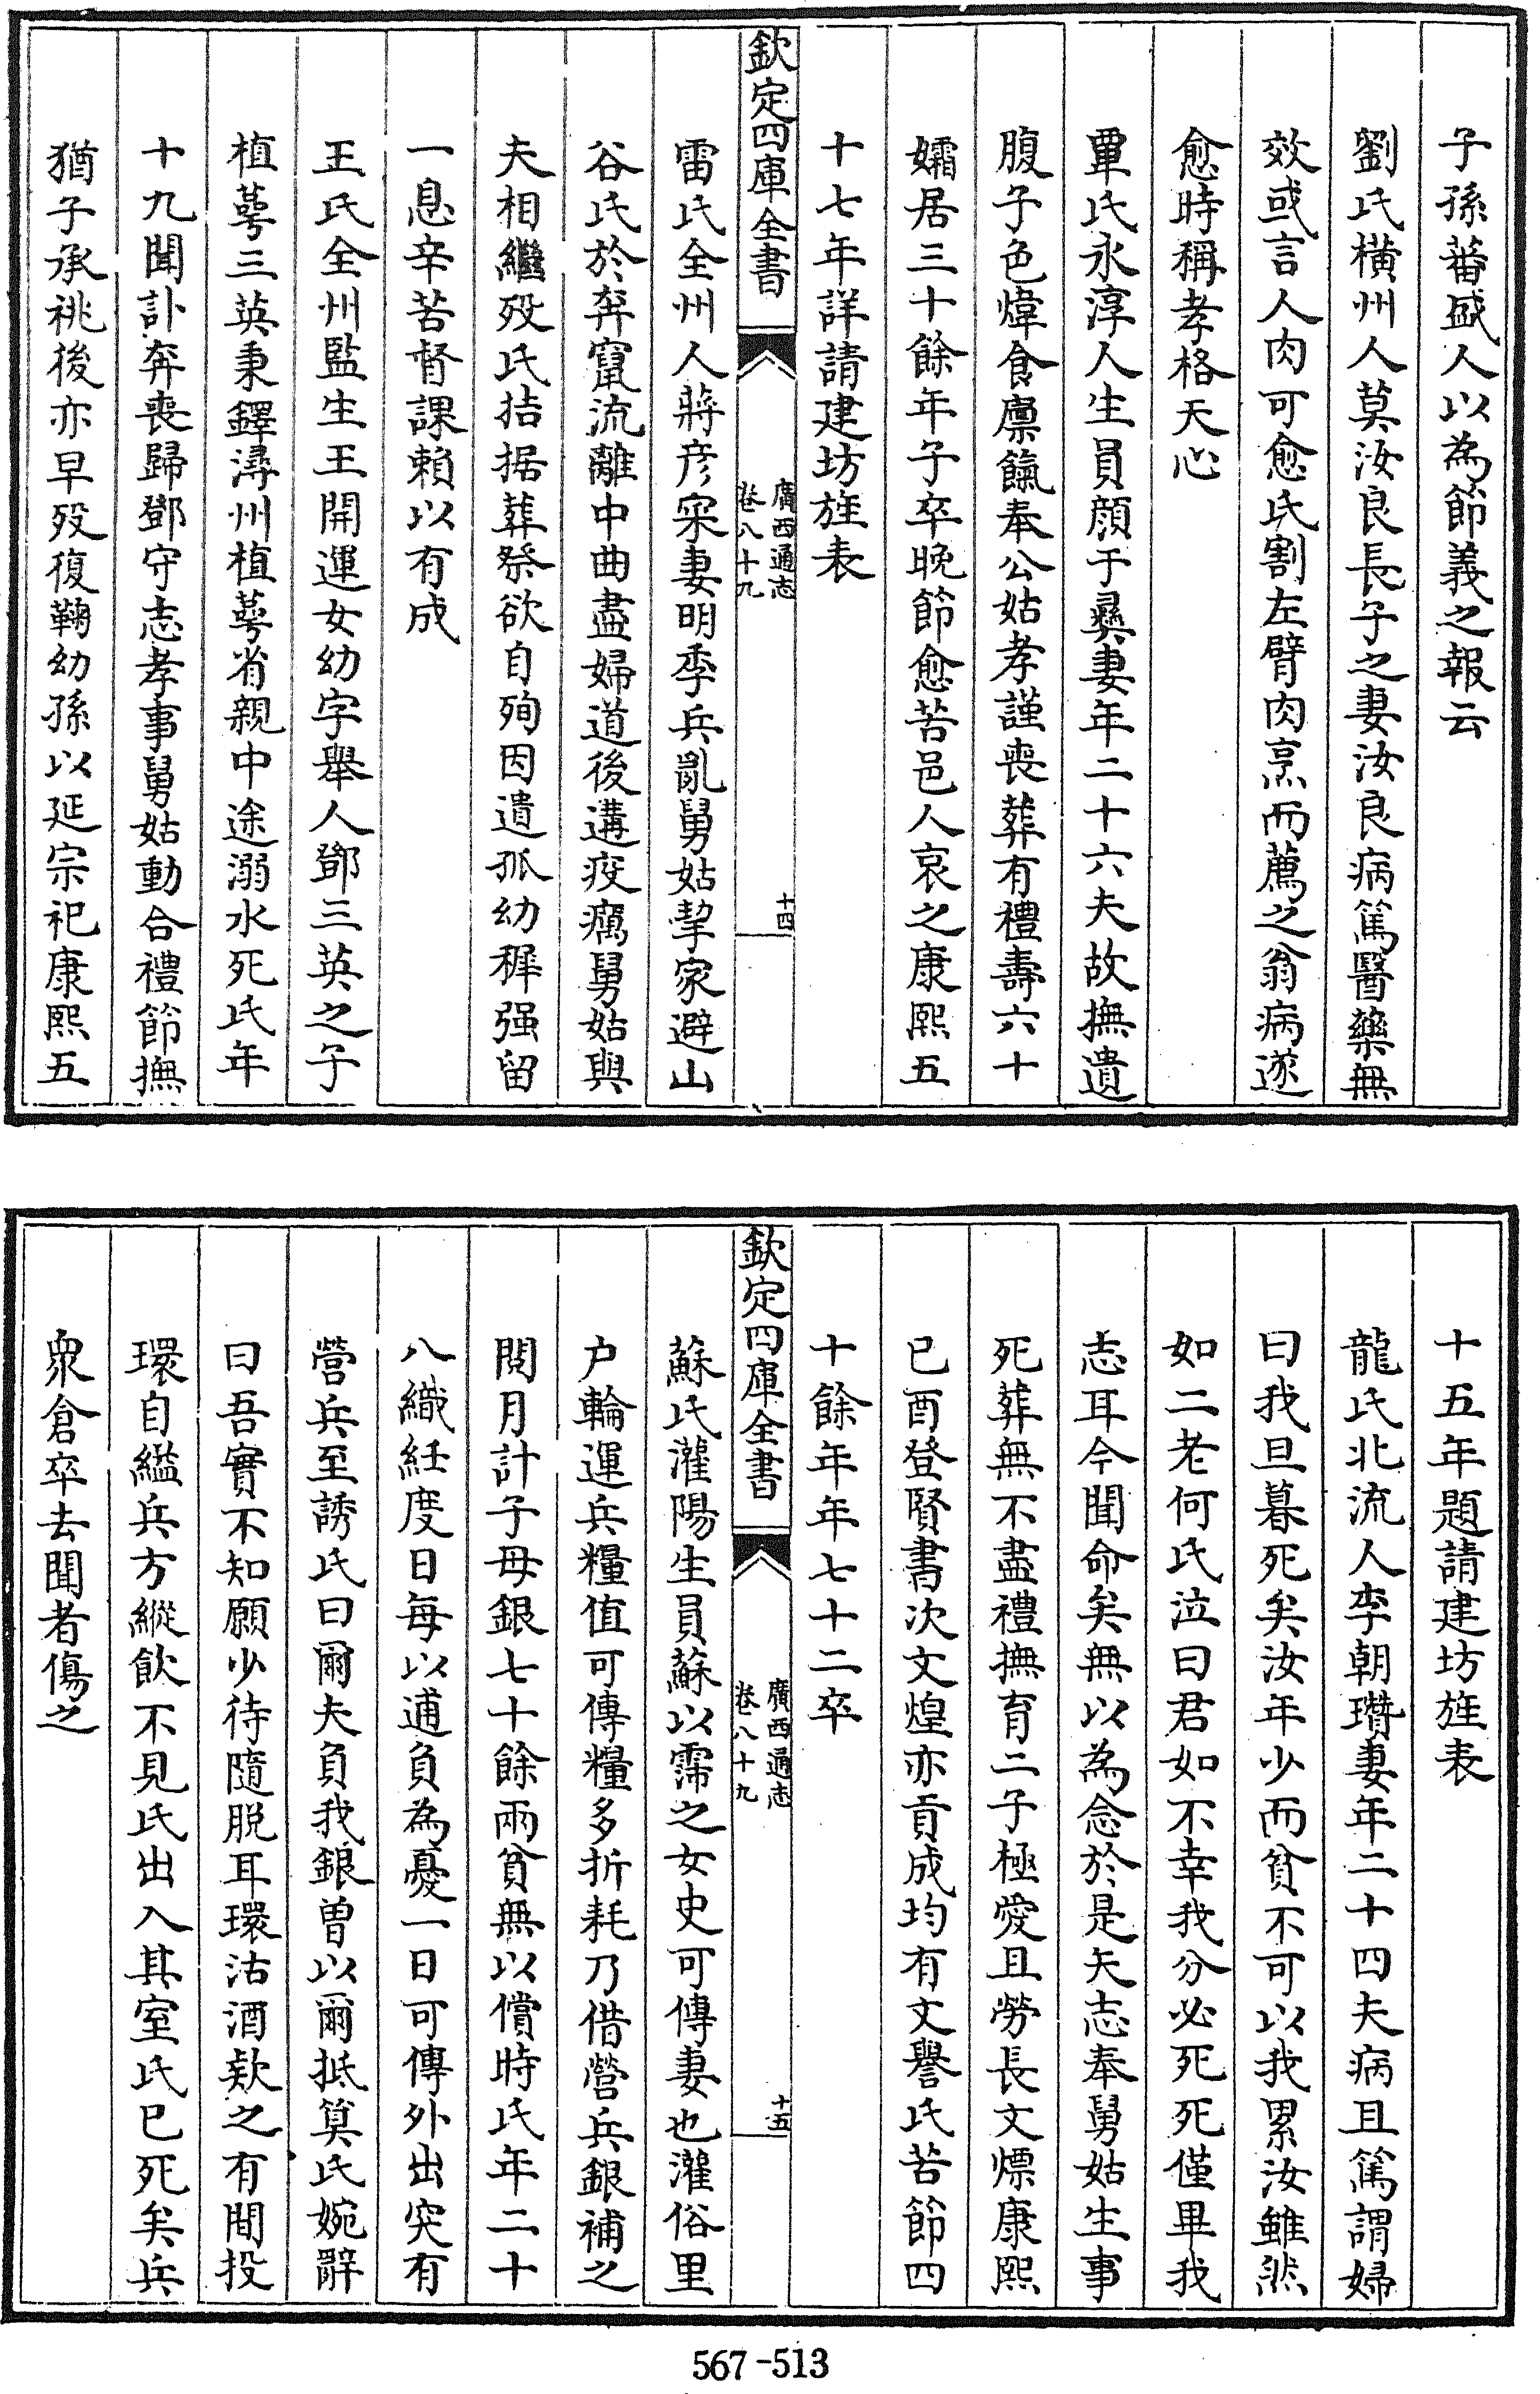 子孫蕃盛人以為節義之報云
劉氏橫州人莫汝良長子之妻汝良病篤醫藥無
效或言人肉可愈氏割左臂肉烹而薦之翁病遂
愈時稱孝格天心
覃氏永淳人生員顔于彞妻年二十六夫故撫遺
腹子色煒食廪餼奉公姑孝謹喪葬有禮壽六十
孀居三十餘年子卒晚節愈苦邑人哀之康熙五
十七年詳請建坊旌表
欽定四庫全書
廣西通志
卷八十九
十四
雷氏全州人蔣彦寀妻明季兵亂舅姑挈家避山
谷氏於奔竄流離中曲盡婦道後遘疫癘舅姑與
夫相繼殁氏拮据葬祭欲自殉因遺孤幼穉强留
一息辛苦督課賴以有成
王氏全州監生王開運女幼字舉人鄧三英之子
植蕚三英秉鐸潯州植蕚省親中途溺水死氏年
十九聞訃奔喪歸鄧守志孝事舅姑動合禮節撫
猶子承祧後亦早殁復鞠幼孫以延宗祀康熙五
十五年題請建坊旌表
龍氏北流人李朝瓚妻年二十四夫病且篤謂婦
曰我旦暮死矣汝年少而貧不可以我累汝雖然
如二老何氏泣曰君如不幸我分必死死僅畢我
志耳今聞命矣無以為念於是矢志奉舅姑生事
死葬無不盡禮撫育二子極愛且勞長文煙康熙
已酉登賢書次文煌亦貢成均有文譽氏苦節四
十餘年年七十二卒
欽定四庫全書
廣西通志
卷八十九
十五
蘇氏灌陽生員蘇以霈之女史可傳妻也灌俗里
户輪運兵糧值可傳糧多折耗乃借營兵銀補之
閱月計子母銀七十餘兩貧無以償時氏年二十
八織紝度日每以逋負為憂一日可傳外出突有
營兵至誘氏曰爾夫負我銀曾以爾抵筭氏婉辭
曰吾實不知願少待隨脱耳環沽酒欵之有間投
環自縊兵方縱飲不見氏出入其室氏已死矣兵
衆倉卒去聞者傷之
567-513